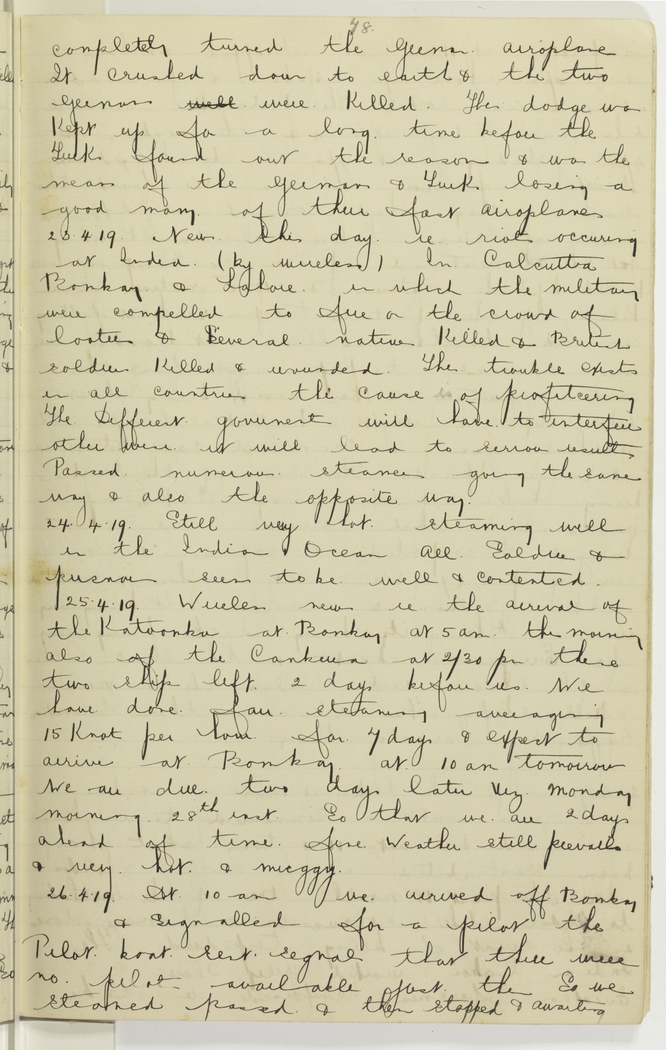 78.
completely turned the German airoplane
It crushed down to earth & the two
Germans well were Killed. The dodge was
Kept up for a long. time before the
Turks found out the reason & was the
means of the German & Turks losing a
good many of their fast airoplanes
23.4.19 News this day. re riots occuring
at India. (by wireless) In Calcutta
Bombay & Lahore. in which the military
were compelled to fire on the crowd of
looters & Several natives Killed & British
soldiers Killed & wounded. The trouble exists
in all countries the cause is of profiteering
The Different goverment will have to interfere
other wise it will lead to serious results
Passed numerous steamers going the same
way & also the opposite way.
24.4.19. Still very hot. steaming well
in the Indian Ocean All. Soldiers &
prisnors seem to be well & contented.
25.4.19. Wireless news re the arrival of
the Katoomba at Bombay at 5 am this morning
also of the Canberra at 2/30 pm these
two ships left. 2 days before us. We
have done. fair steaming averaging
15 Knots per hour. for 7 days & expect to
arrive at Bombay at 10 am tomorrow
We are due. two days later viz. Monday
morning 28th inst So that we. are 2 days
ahead of time. fine Weather still prevails
& very hot. & muggy.
26.4.19. At 10 am we. arrived off Bombay
& Signalled for a pilot the
Pilot. boat. sent. signal that there were
no. pilot available just. the So we
steamed passed & then stopped & awaiting